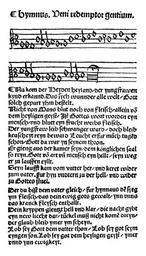 Hymnus, Veni redemptor gentium.
Nu kom der Heyden heyland/ der yungfrawen
kynd erkannd. Das sych wunnder alle welt/ Gott
solch gepurt yhm bestelt.
Nicht von Mans blut noch von fleisch/ allein von
dem heyligen geyst/ Ist Gottes wort worden eyn
mensch/ vnd bluet eyn frucht weibs fleisch.
Der yungfraw leib schwanger ward/ doch bleib
keuscheyt reyn beward/ Leucht erfur manch tugend
schon/ Gott da war yn seynem thron.
Er gieng aus der kamer seyn/ dem königlichen saal
so reyn. Gott von art vnd mensch eyn hellt/ seyn weg
er zu lauffen eyllt.
Seyn lauff kam vom vatter her/ vnd keret wider
zum vater/ fur hyn vndern zu der hell/ vnd wider zu
Gottes stuel.
Der du bist dem vater gleich/ fur hynnaus den syeg
ym fleisch/ das dein ewig gots gewalt/ ynn vns das
kranck fleysch enthallt.
Dein kryppen glentzt hell vnd klar/ die nacht gybt
eyn new liecht dar/ tunckel muß nicht komen dreyn/
der glaub bleib ymer ym scheyn.
Lob sey Gott dem vatter thon/ Lob sey got seym
eyngen son/ Lob sey got dem heyligen geyst/ ymer
vnnd yn ewigkeyt.